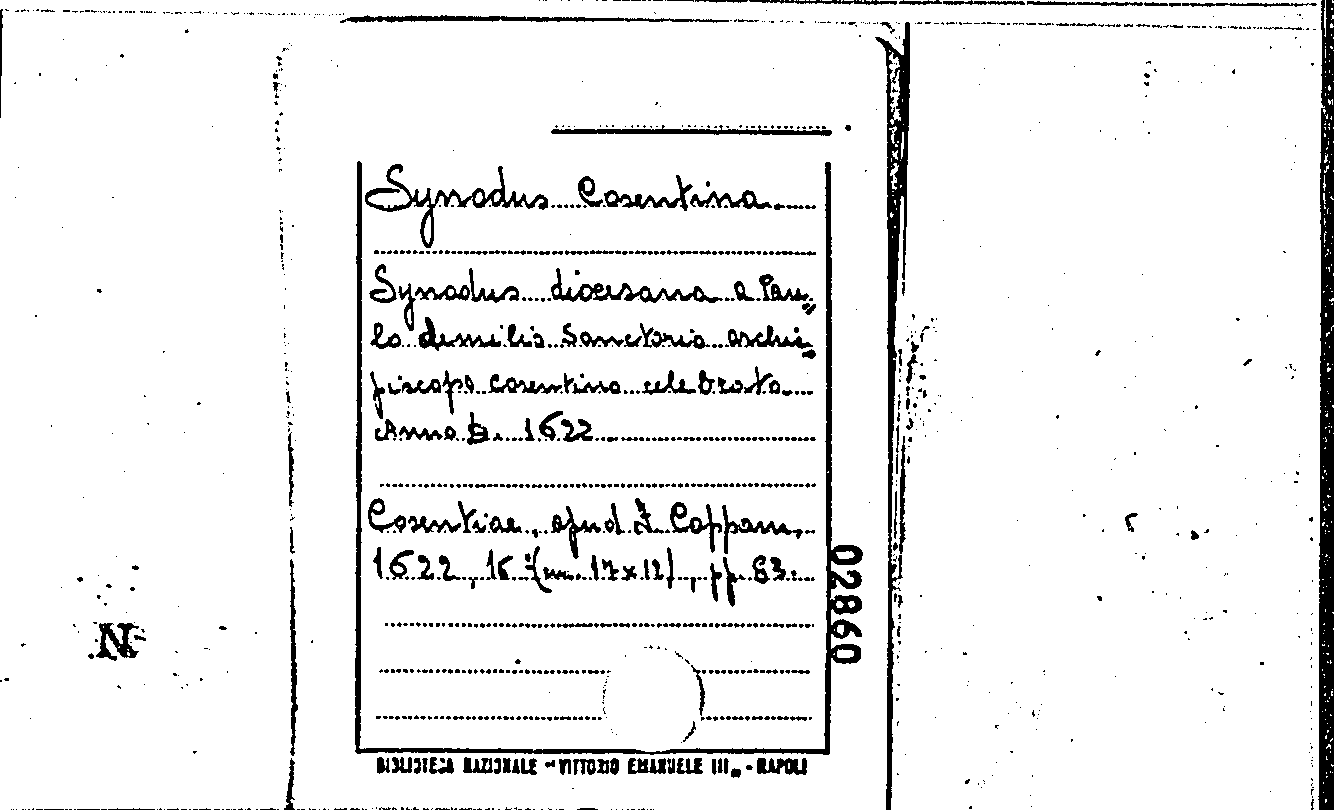 Synodus Cosentina
Synodus diocesana a Pau„
lo Aemilio Sanctorio archie„
piscopo cosentino celebrata
Anno D. 1622
Cosentiae, apud Cappam,
1622, 16° (m. 17x12), pp. 83.
02860
N
BIBLIOTECA NAZIONALE - VITTORIO EMANUELE III„ - NAPOLI